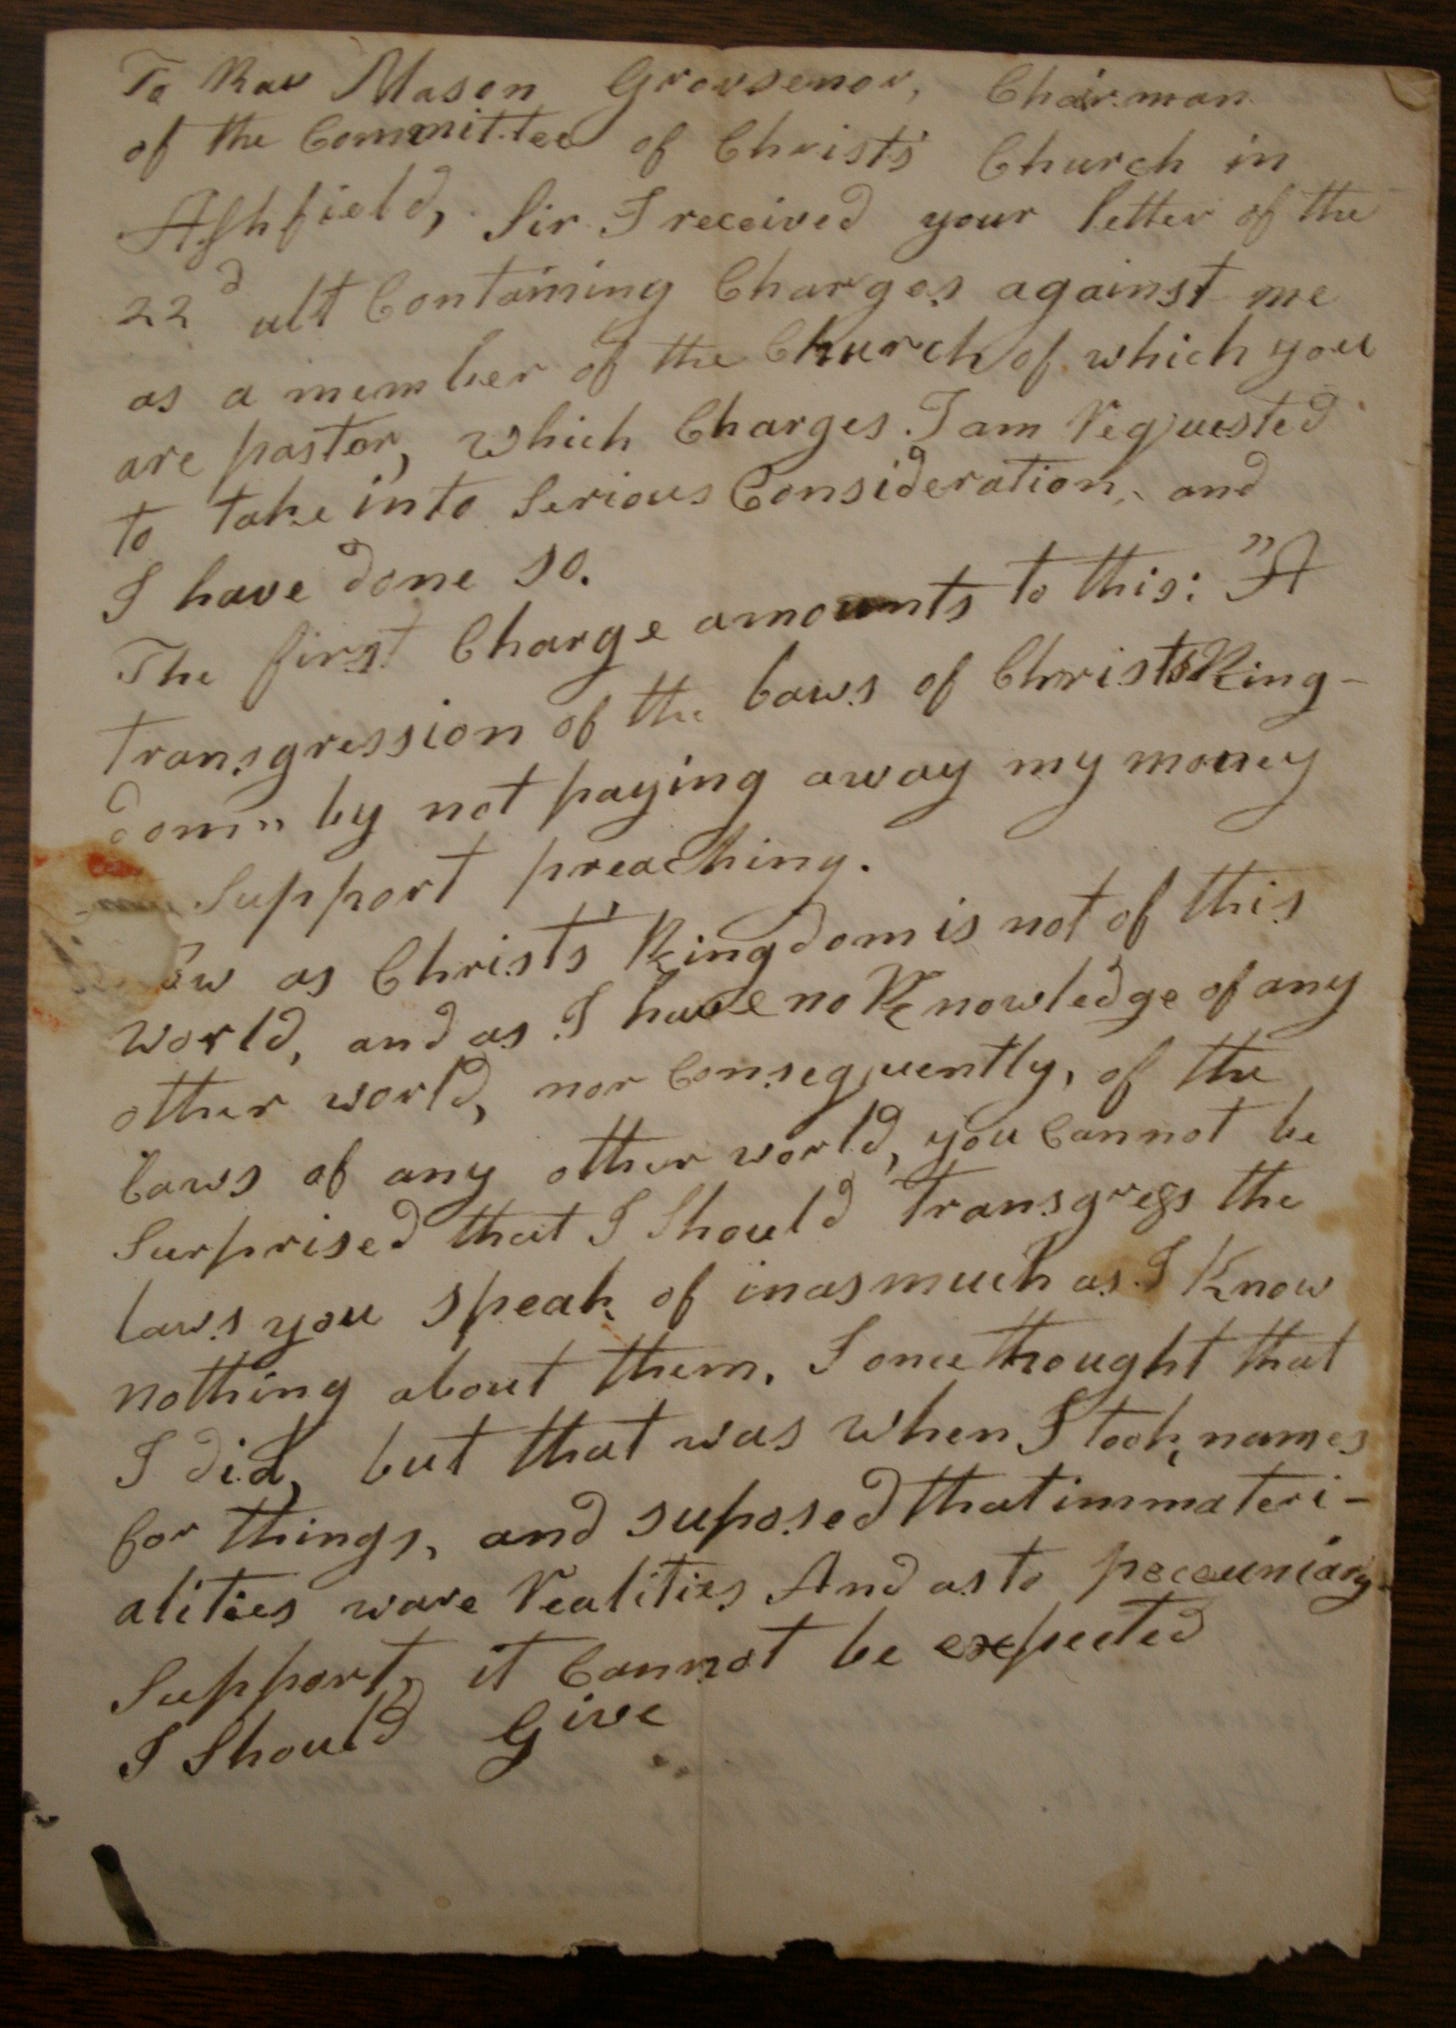 To Rav Mason Grovsenor, Chairman
of the Committee of Christs Church in
Ashfield, Sir I received your letter of the
22d ult Containing Charges against me
as a member of the Church of which you
are pastor, which Charges I am Requested
to take into Serious Consideration, and
I have done so.
The first Charge amounts to this: "A
transgression of the laws of Christs King-
dom" by not paying away my money
Support preaching.
as Christ's Kingdom is not of this
world, and as I have no Knowledge of any
other world, nor Consequently, of the
laws of any other world, you Cannot be
Surprised that I Should transgress the
laws you speak of inasmuch as I Know
nothing about them. I once thought that
I did, but that was when I took names
for things, and suposed that immateri-
alities ware Realities And as to peceuniary
Support, it Cannot be expected
I Should Give